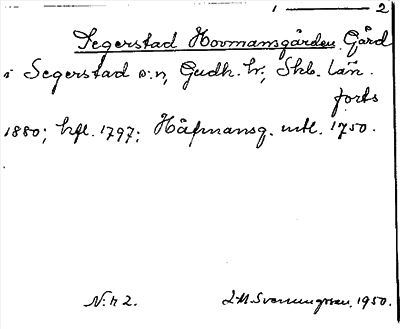 1 — 2
Segerstad Hovmansgården. Gård
i Segerstad s:n, Gudh. hd, Skb. län.
forts
1880; hfl. 1797; Håfmansg. mtl. 1750.
N:r 2. J.M. Svennungsson. 1950.